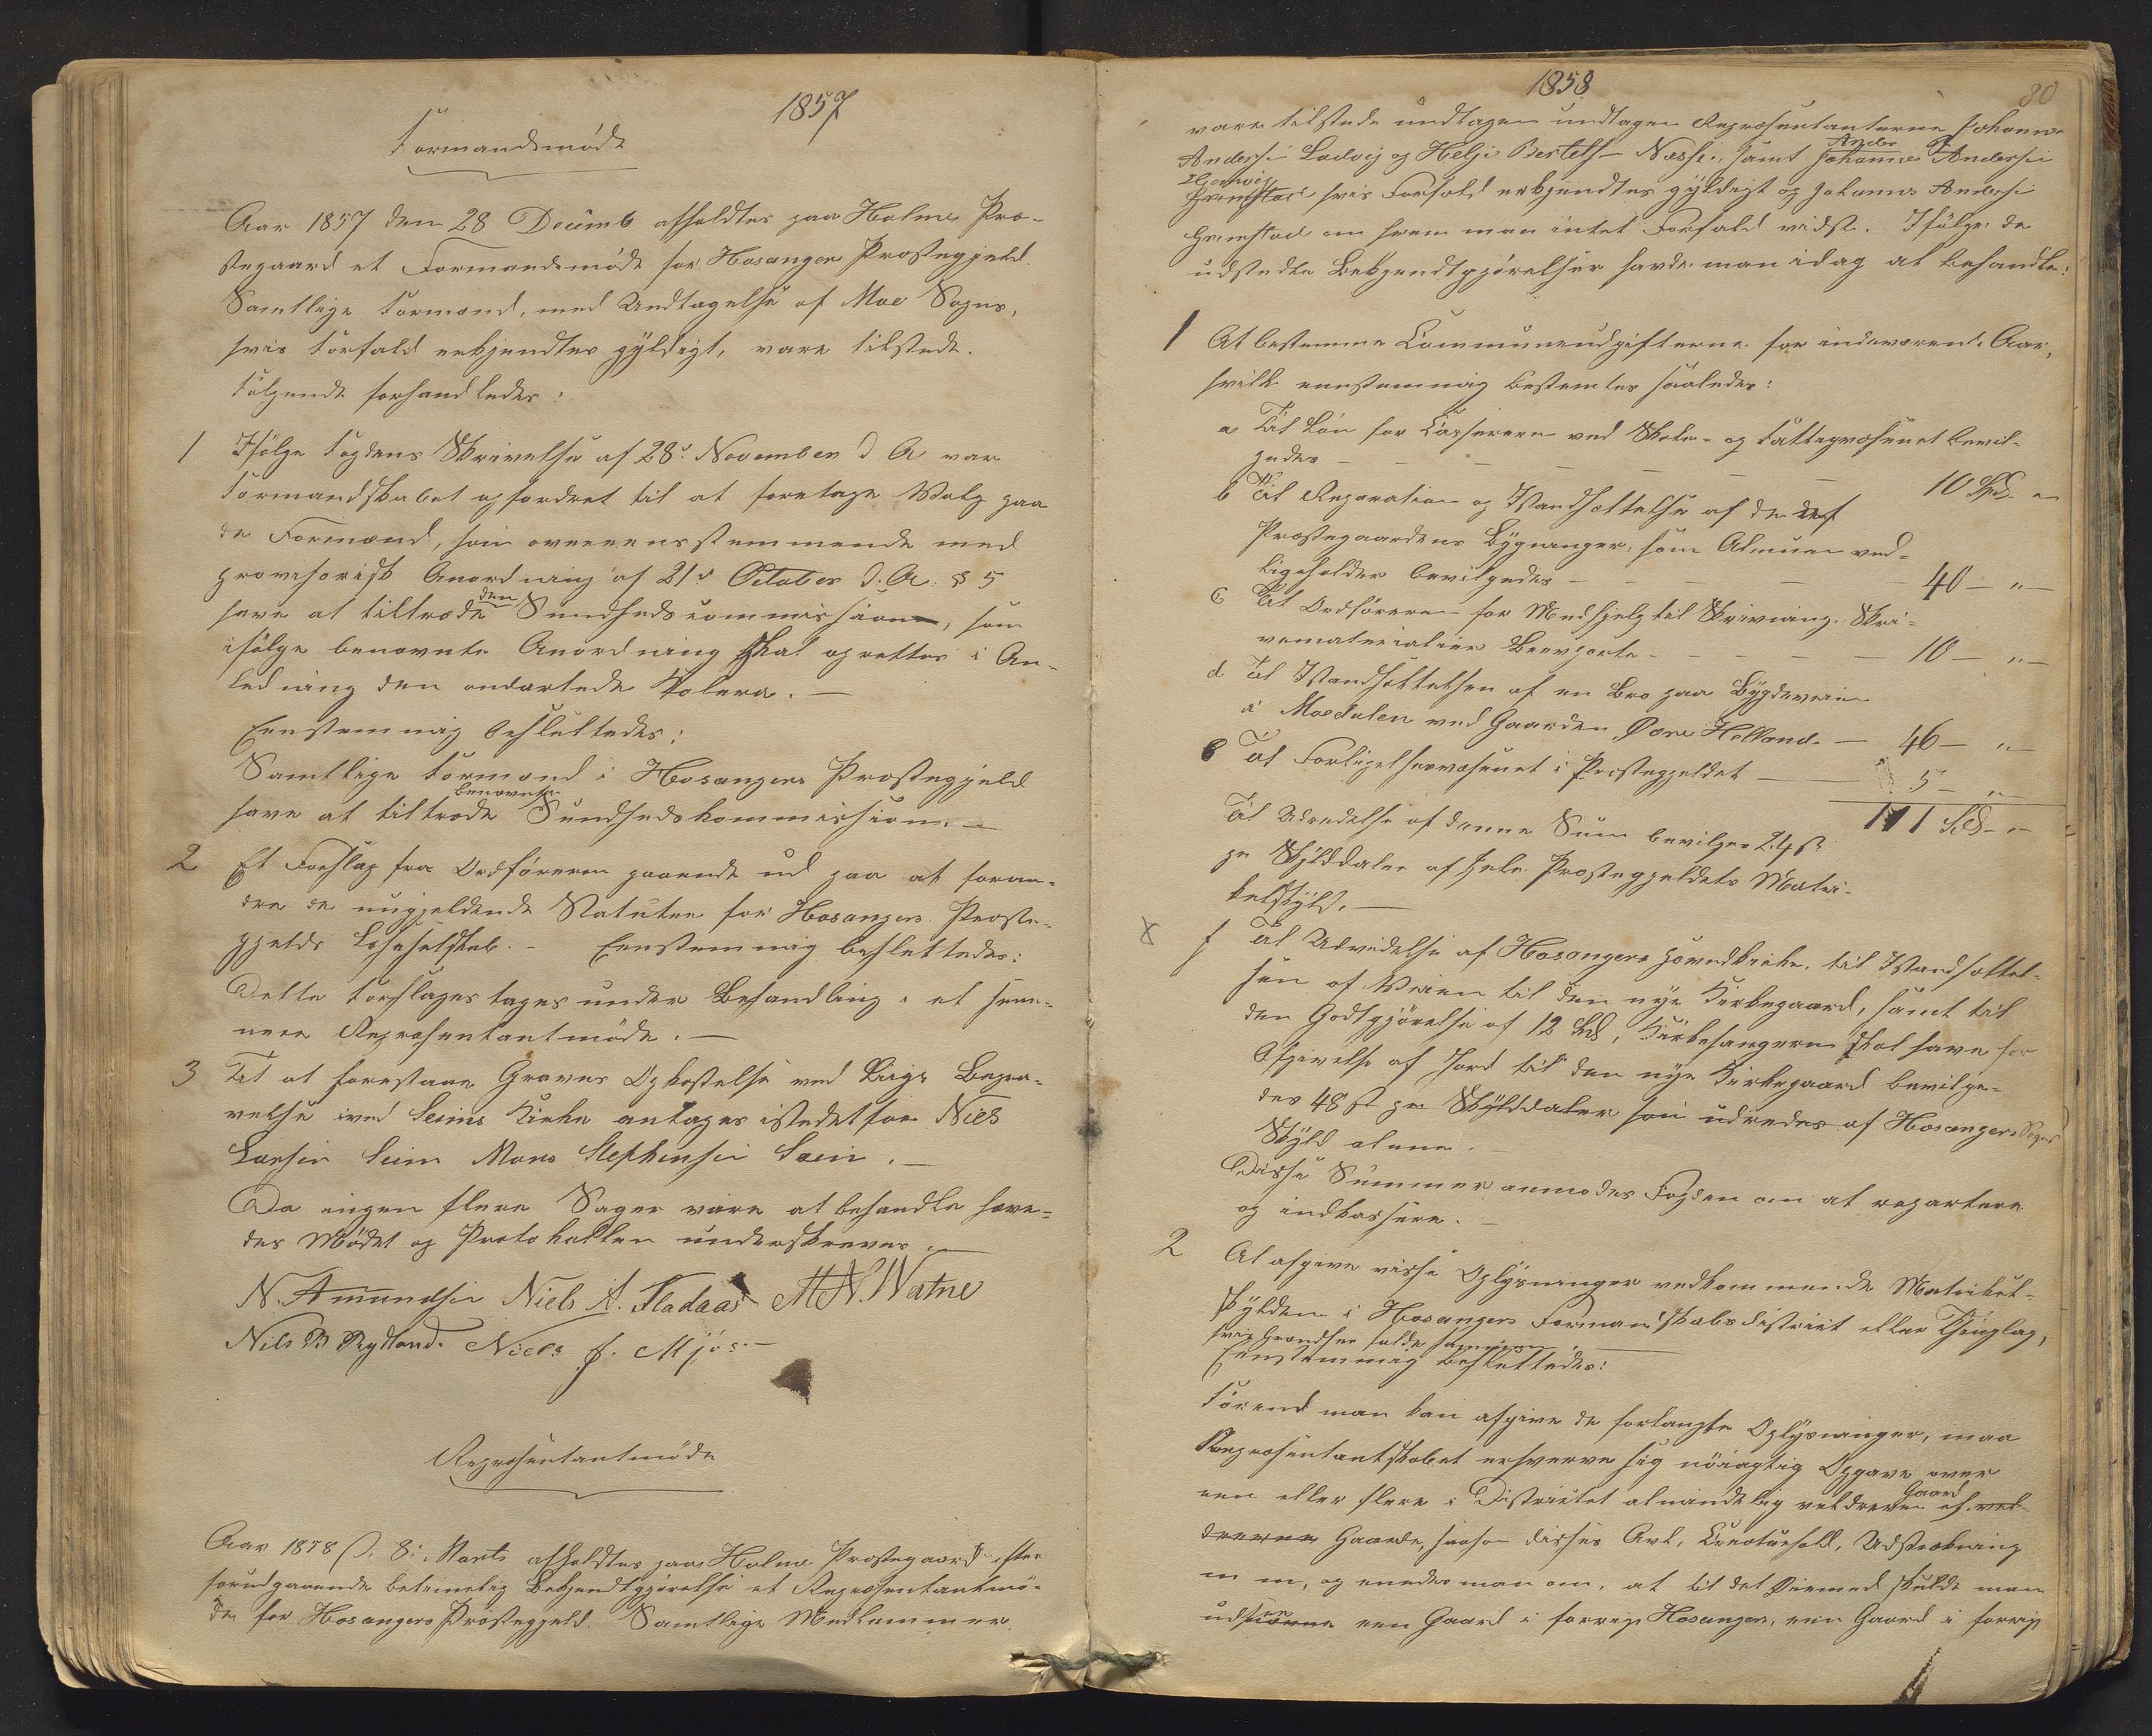 1857
Formandsmøde
Aar 1857 den 28 Decemb afholdtes paa Holme Præ-
stegaard et Formandsmøde for Hosanger Præstegjæld.
Samtlige Formænd, med Undtagelse af Moe Sogns,
hvis Forfald erkjendtes gyldigt, vare tilstede.
Følgende forhandledes:
1 Ifølge Fogdens Skrivelse af 28de November d A var
Formandskabet opfordret til at foretage Valg paa
de Formænd, som overeensstemmende med
provisorisk Anordning af 21de October d. A. § 5
have at tiltræde den Sundhedscommission, som
ifølge benævnte Anordning skal oprettes i An-
ledning den ondartede Kolera. —
Eenstemmig besluttedes:
Samtlige Formænd i Hosangers Præstegjeld
have at tiltræde benævnte Sundhedskommission. —
2 Et Forslag fra Ordføreren gaaende ud paa at foran-
dre de nugjeldende Statuter for Hosangers Præste-
gjelds Læseselskab. - Eenstemmig besluttedes:
Dette Forslages tages under Behandling i et sene-
nere Repræsentantmøde. —
3 Til at forestaae Graves Opkastelse ved Liigs Begra-
velse ved Seims Kirke antages istedetfor Niels
Larsen Seim Mons Stephensen Seim. —
Da ingen flere Sager vare at behandle hæve-
des Mødet og Protokollen underskreves. —
N. Amundsen Niels A. Fladaas M N. Watne
Nils B Rydland. Niels J. Mjøs. —
Repræsentantmøde
Aar 1858 d. 8de Marts afholdtes paa Holme Præstegaard efter
forudgaaende betimelig Bekjendtgjørelse et Repræsentantmø-
de for Hosangers Præstegjeld. Samtlige Medlemmer
1858
80
vare tilstede undtagen undtagen Repræsentanterne Johannes
Andersen Ladvig og Helje Bertels- Næsse, samt Johannes Andersen
Grimstad hvis Forfald erkjendtes gyldigt og Johannes Anders
Grimstad om hvem man intet Forfald vidste. Ifølge de
udstedte Bekjendtgjørelser havde man idag at behandle:
1 At bestemme Communeudgifterne for indeværende Aar,
hvilke eenstemmig bestemtes saaledes:
a Til Løn for Casserern ved Skole- og Fattigvæsenet bevil-
gedes — — — — — 10 Spd "
b Til Reparation og Istandsættelse af de
Præstegaardens Bygninger, som Almuen ved-
ligeholder bevilgedes — — — 40 — " —
c Til Ordføreren for Medhjelp til Skrivning, Skri-
vematerialier Brevporto — — — 10 — " —
d Til Istandsættelsen af en Bro paa Bygdeveien
i Moedalen ved Gaarden Øvre Helland. — 46 — " —
e Til Forligelsesvæsenet i Præstegjeldet — 5 — " —
111 Spd - "
Til Udredelse af denne Sum bevilges 24 ß
pr Skylddaler af hele Præstegjeldets Matri-
kelskyld. —
x f Til Udvidelse af Hosangers Hovedkirke, til Istandsættel-
sen af Veien til den nye Kirkegaard, samt til
den Godtgjørelse af 12 Spd, Kirkesangeren skal have for
Afgivelse af Jord til den nye Kirkegaard bevilge-
des 48 ß pr Skylddaler som udredes af Hosangers Sogns
Skyld alene. —
Disse Summer anmodes Fogden om at repartere
og indkassere. —
2 At afgive visse Oplysninger vedkommende Matrikel-
skylden i Hosangers Formandskabsdistrict eller Thinglag,
hvis Grændser falde sammen. —
Eenstemmig besluttedes:
Førend man kan afgive de forlangte Oplysninger, maa
Repræsentantskabet erhverve sig nøiagtig Opgave over
een eller flere i Districtet almindelig veldreven Gaard
Gaarde, saasom disses Avl, Creaturhold, Udstrækning
m m, og enedes man om, at til det Øiemed skulde man
een Gaard i forrige Hosanger, een Gaard i forrige